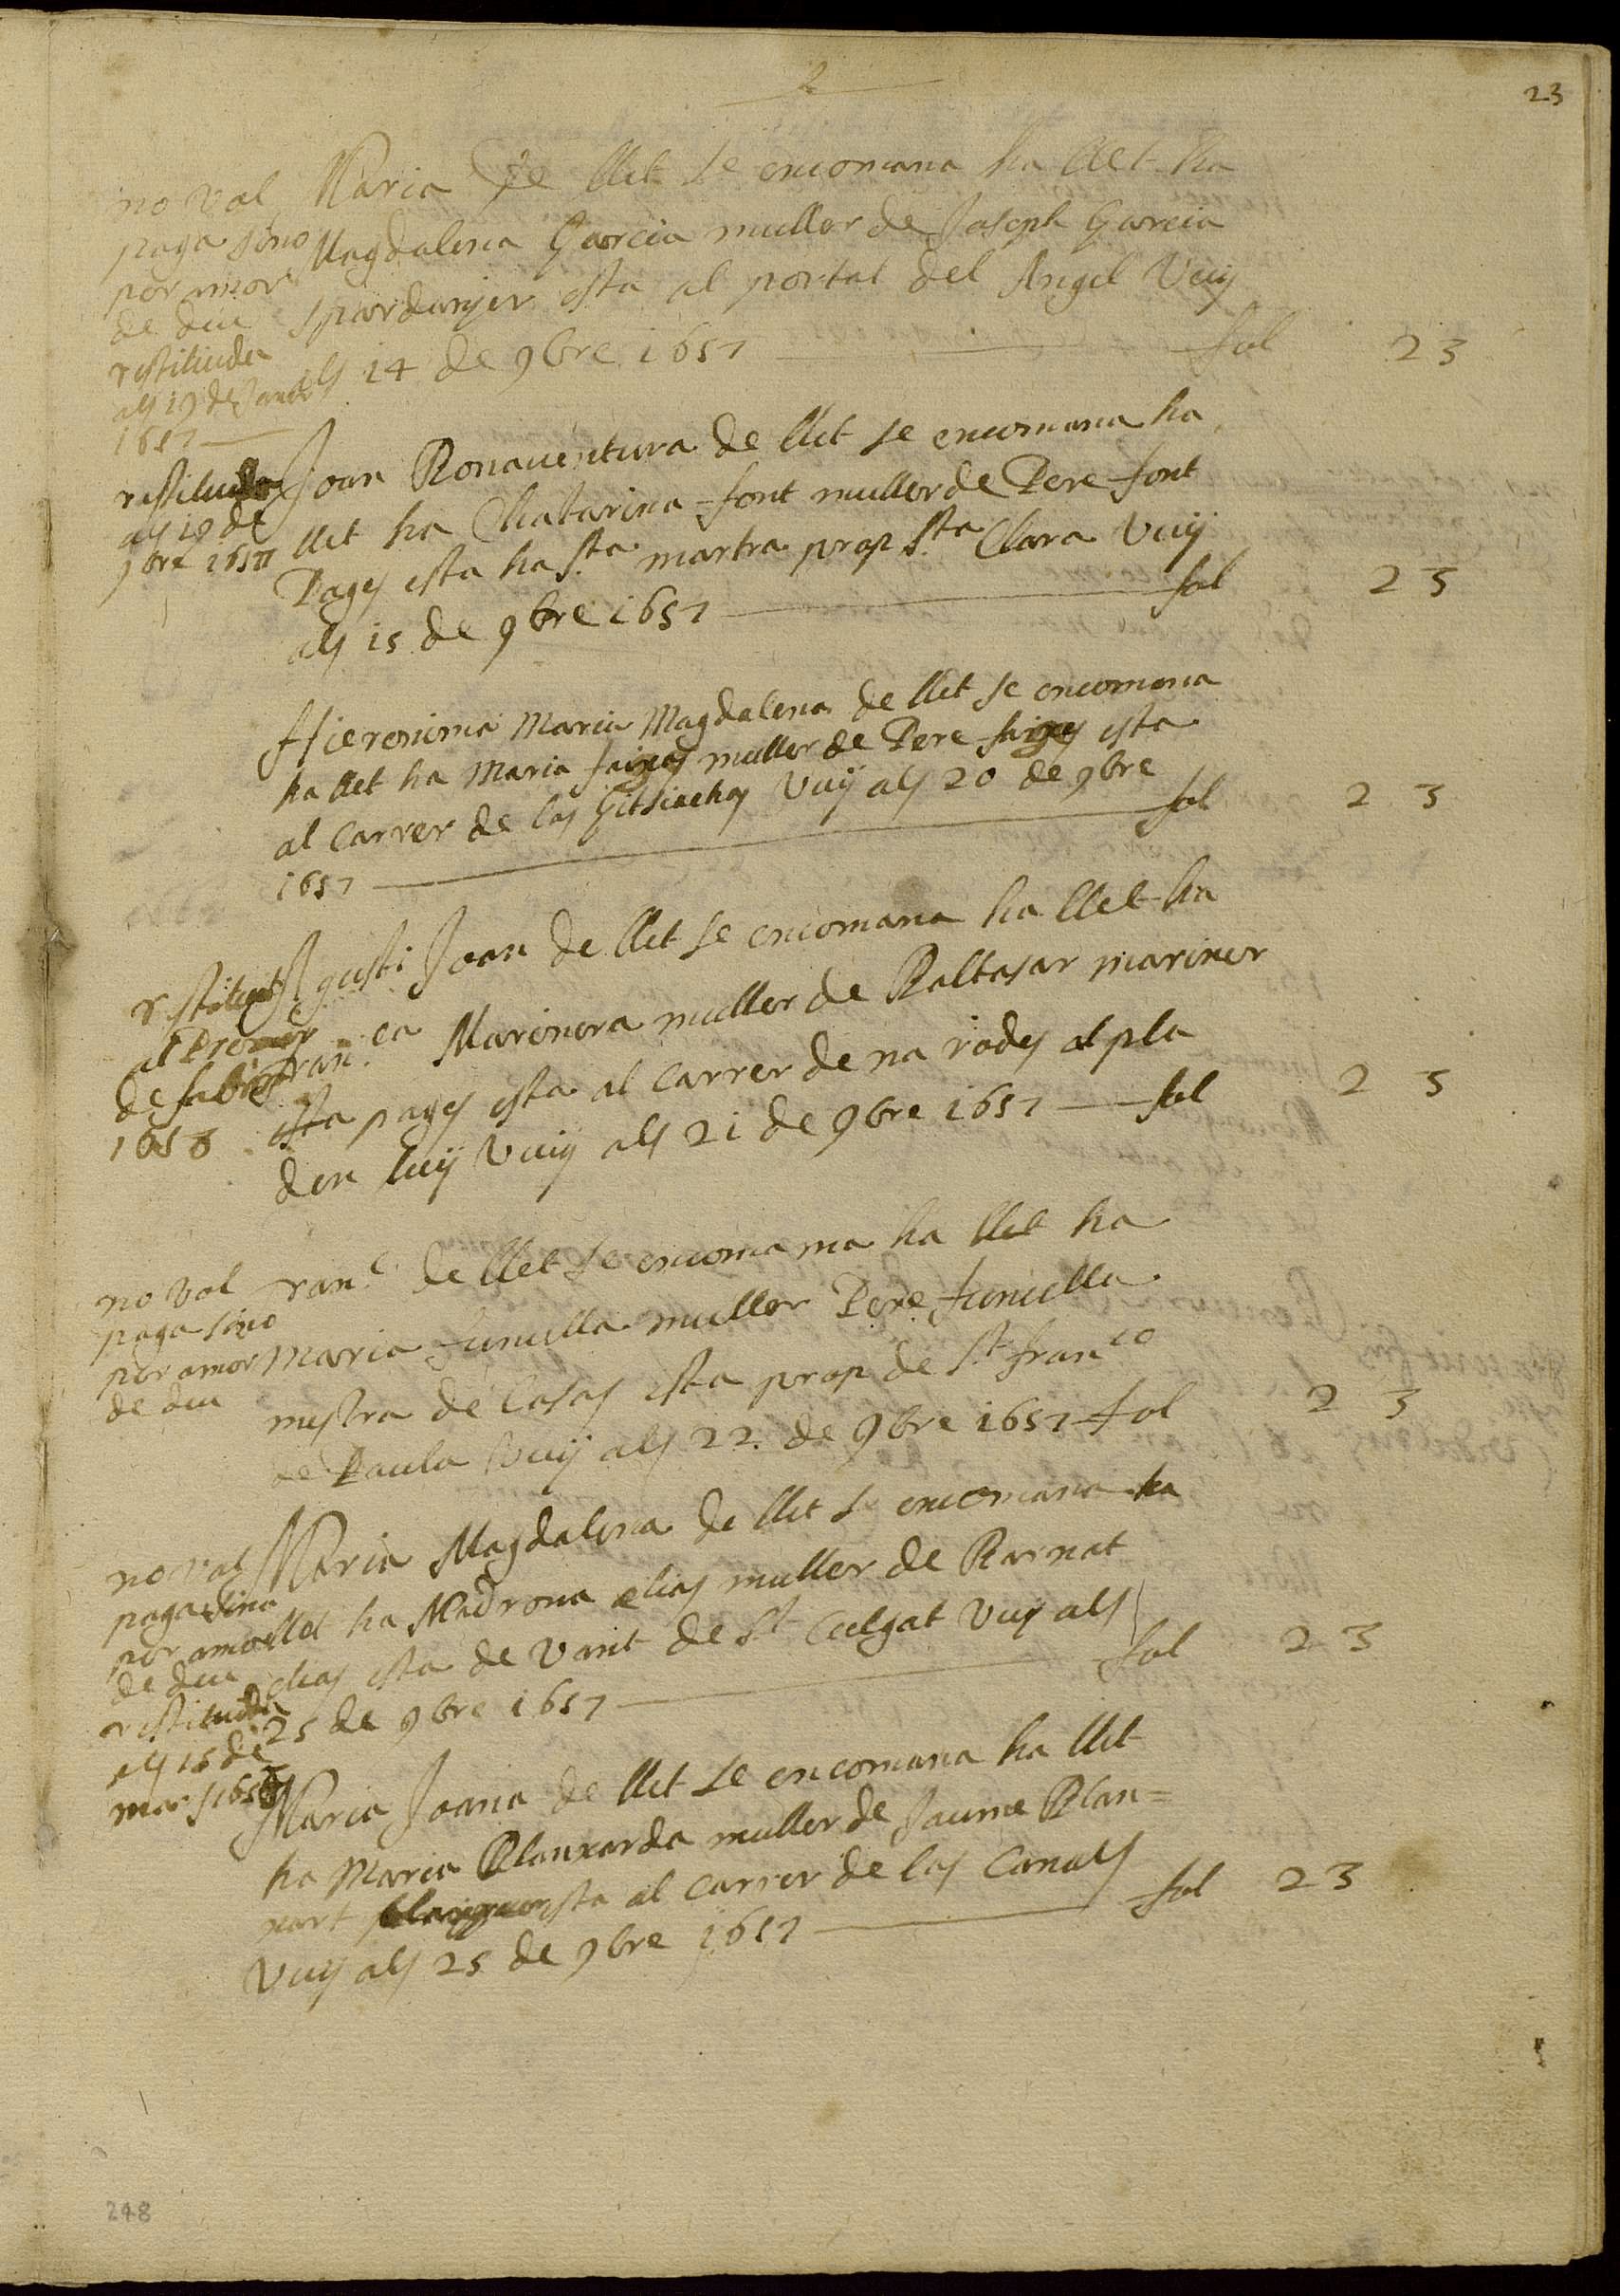 23
no val
paga sino
per mor
de deu
restituida
als 19 de Janer
1657
Maria de llet se encomana ha llet ha
Magdalena Garcia muller de Joseph Garcia
spardanyer esta al portal del Angel Vuy
als 14 de 9bre 1657 fol 23
restituida
als 19 de
9bre 1657
Joan Bonauentura de llet se encomana ha
llet ha Chatarina font muller de Pere font
Pages esta ha Sta martra prop Sta Clara Vuÿ
als 15 de 9bre 1657 fol 23
Hieronima Maria Magdalena de llet se encomana
ha llet ha Maria muller de Pere esta
al Carrer de las Vuÿ als 20 de 9bre
1657 fol 23
restituit
al Primer
de fabrer
1658
Agusti Joan de llet se encomana ha llet ha
Franca Marinera muller de Baltasar mariner
esta pages esta al Carrer de na rodes al pla
den lluÿ Vuiy als 21 de 9bre 1657 fol 23
no val
paga sino
per amor
de deu
franc de llet se encomana ha llet ha
Maria funulla muller Pere funulla
mestra de Casas esta prop de St franco
de Paula Vuiÿ als 22 de 9bre 1657 fol 23
no val
paga sino
per amor
de deu
restituida
als 15 de
mars 1658
Maria Magdalena de llet se encomana ha
llet ha Madrona elias muller de Barnat
elias esta de Vant de St Culgat Vuy als
25 de 9bre 1657 fol 23
Maria Joana de llet se encomana ha llet
ha Maria Blanxarda muller de Jaume Blan=
xart esta al Carrer de las Canals
Vuy als 25 de 9bre 1657 fol 23
248